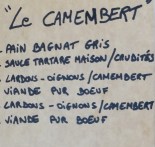 "Le CAMEMBERT"
- PAIN BAGNAT GRIS
- SAUCE TARTARE MAISON/CRUDITÉS
- LARDONS - OIGNONS/CAMEMBERT
- VIANDE PUR BOEUF
- LARDONS - OIGNONS/CAMEMBERT
- VIANDE PUR BOEUF